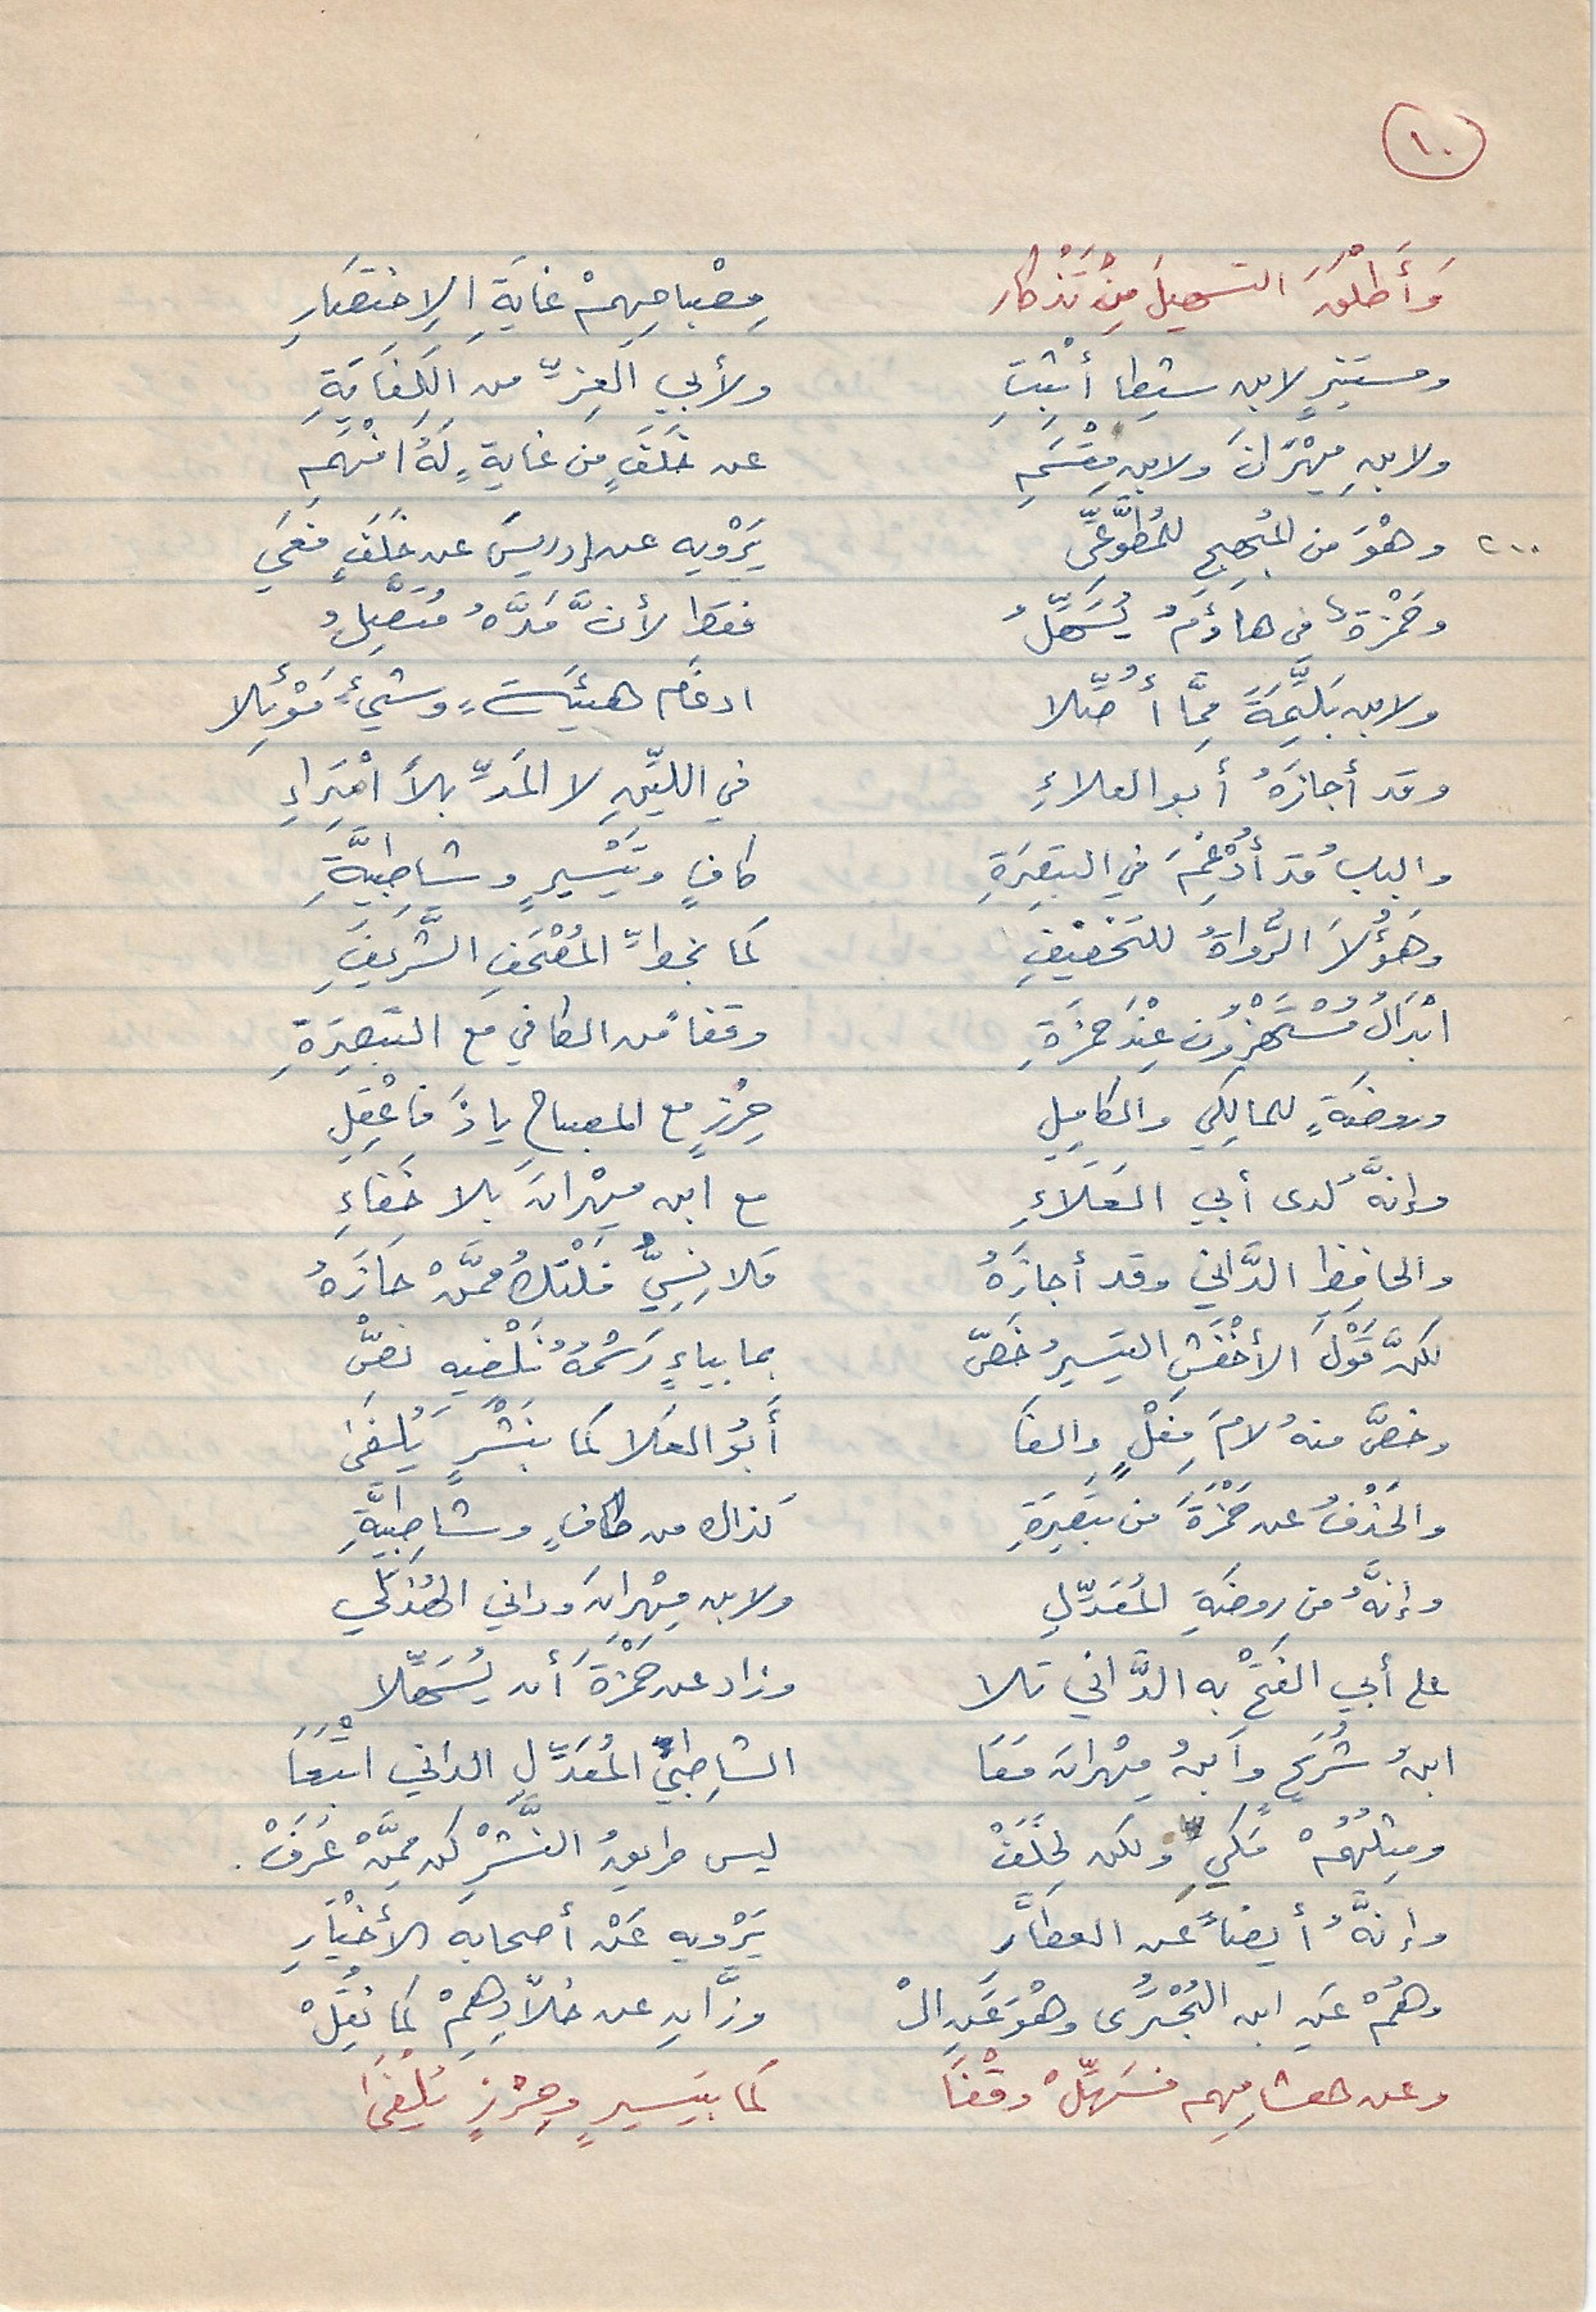 ١٠
وَأَطْلَقَ التسهيلَ مِنْ تَذْكارِ مِصْباحِهِمْ غايَةِ الِاختصَارِ
ومستنيرٍ لابن سِيْطا أثبِتِ ولأبي العِزِّ من الكِفَايَةِ
ولابنِ مِهْرَانَ ولابن مِقْسَمِ عن خَلَفٍ من غايةٍ لَهُ افْهَمِ
٢٠٠ وهْوَ من المُبْهِجِ للمُطَّوِّعِي يَرْويه عن إدريسَ عن خَلَفٍ فَعِي
وحَمْزَةٌ في هاؤُمُ يُسَهِّلُ فقط لأنَّ مَدَّهُ مُتَّصِلُ
ولابن بَلِّيمَةَ مِمَّا أُصِّلا ادغَام هيئَت وشيءٍ مَوْئِلا
وقد أجازَهُ أبو العلاءِ في اللينِ لا المَدِّ بلاَ امْتِرَاءِ
والبابُ قد أُدْغِمَ في التبصِرَةِ كافٍ وتَيْسِيرٍ وشَاطِبِيَّةِ
وهَؤُلَا الرُّواةُ للتخفِيفِ كما بخطِّ المُصْحَفِ الشَّرِيفِ
ابْدَالُ مُسْتَهْزِؤُن عِنْدَ حمزَةِ وقفاً من الكافي مع التبصِرَةِ
وروضَةٍ للمالِكِي والكامِلِ حِرْزٍ مع المصباحِ ياذَا فاعْقِلِ
وإنَّهُ لدى أبي العَلَاءِ مع ابن مِهْرانَ بلا خَفَاءِ
والحافِظِ الدَّاني وقد أجازَهُ فَلَا نِسِيٌّ فَلْتَكُ ممَّنْ حَازَهُ
لكنَّ قَوْلَ الأخْفَشِ اليَسِيرُ خَصّ بما بياءٍ رَسْمُهُ نُلْفيهِ نصّْ
وخصَّ منهُ لامَ فِعْلٍ والفَا أَبُو العَلا كما بنَشْرٍ يُلفَى
والحَذْفُ عن حَمْزَةَ من تبصِرَةِ كذاك من كافٍ وشَاطِبِيَّةِ
وإنَّهُ من روضَةِ المُعَدِّلِ ولابن مِهْرانَ وداني الهُذَلِي
على أبي الفَتْحْ به الدَّاني تلا وزاد عن حَمْزَةَ أن يُسَهِّلا
ابنُ شُرَيْحٍ وابنُ مِهْرانَ مَعَا الشاطِبيُّ المُعَدِّلِ الداني اتْبَعَا
ومِثْلُهُمْ مَكِّي ولكن لِخَلَفْ ليس طريقُ النَّشْرِ كن ممَّنْ عَرَفْ.
وإنَّهُ أيضاً عن العطارِ يَرْويه عَنْ أصحابه الأَخْيَارِ
وهُمْ عَنِ ابن البُحْتُرِى وهْوَ عَنِ الْ وزَّانِ عن خلاَّدِهِمْ كما نُقِلْ
وعن هشامِهِم فسَهِّلْ وقْفَا كما بتيسيرٍ وحِرْزٍ يُلْفَى